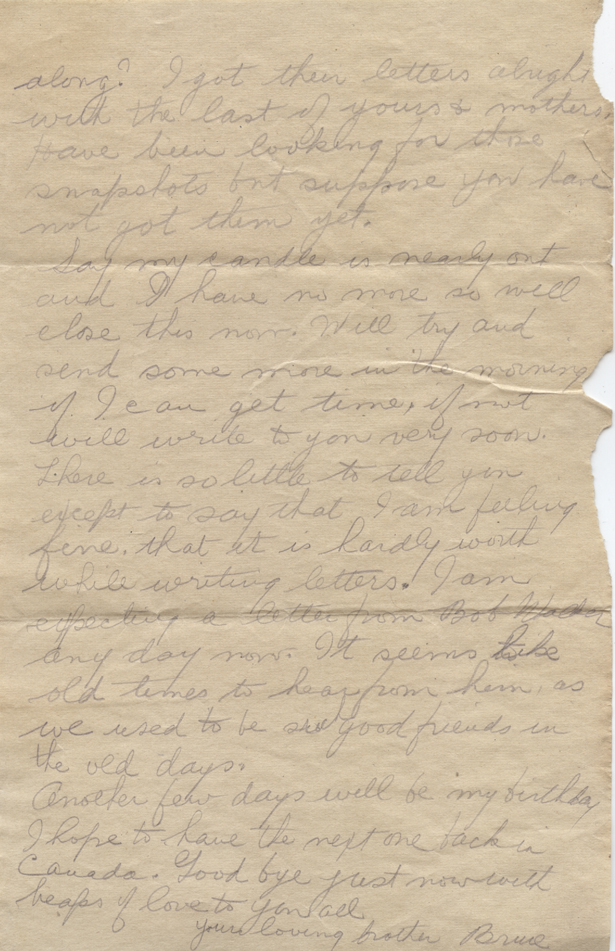 along? I got their letters alright
with the last of yours & mothers.
Have been looking for those
snapshots but suppose you have
not got them yet.
Say my candle is nearly out
and I have no more so will
close this now. Will try and
send some more in the morning
if I can get time, if not
will write to you very soon.
There is so little to tell you
except to say that I am feeling
fine, that it is hardly worth
while writing letters. I am
expecting a letter from Bob
any day now. It seems like
old times to hear from him, as
we used to be such good friends in
the old days.
Another few days will be my birthday
I hope to have the next one back in
Canada. Good bye just now with
heaps of love to you all
your loving brother Bruce